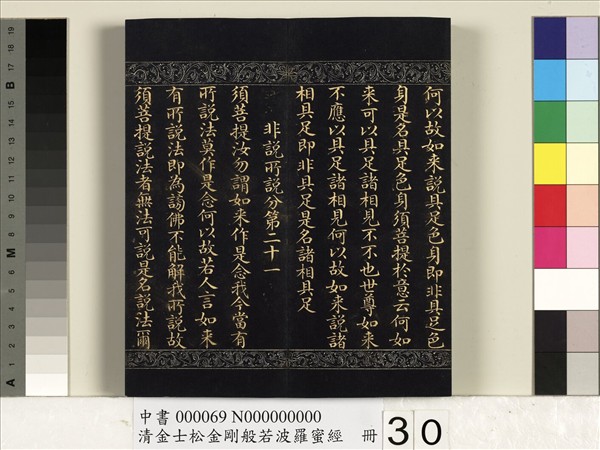 何以故如来說具足色身即非具足色
身是名具足色身須菩提於意云何如
来可以具足諸相見不不也世尊如来
不應以具足諸相見何以故如来說諸
相具足即非具足是名諸相具足
非說所說分第二十一
須菩提汝勿謂如来作是念我今當有
所說法莫作是念何以故若人言如来
有所說法即為謗佛不能解我所說故
須菩提說法者無法可說是名說法爾
中書 000069 N000000000
清金士松金剛般若波羅蜜經 冊
30
A
M
B